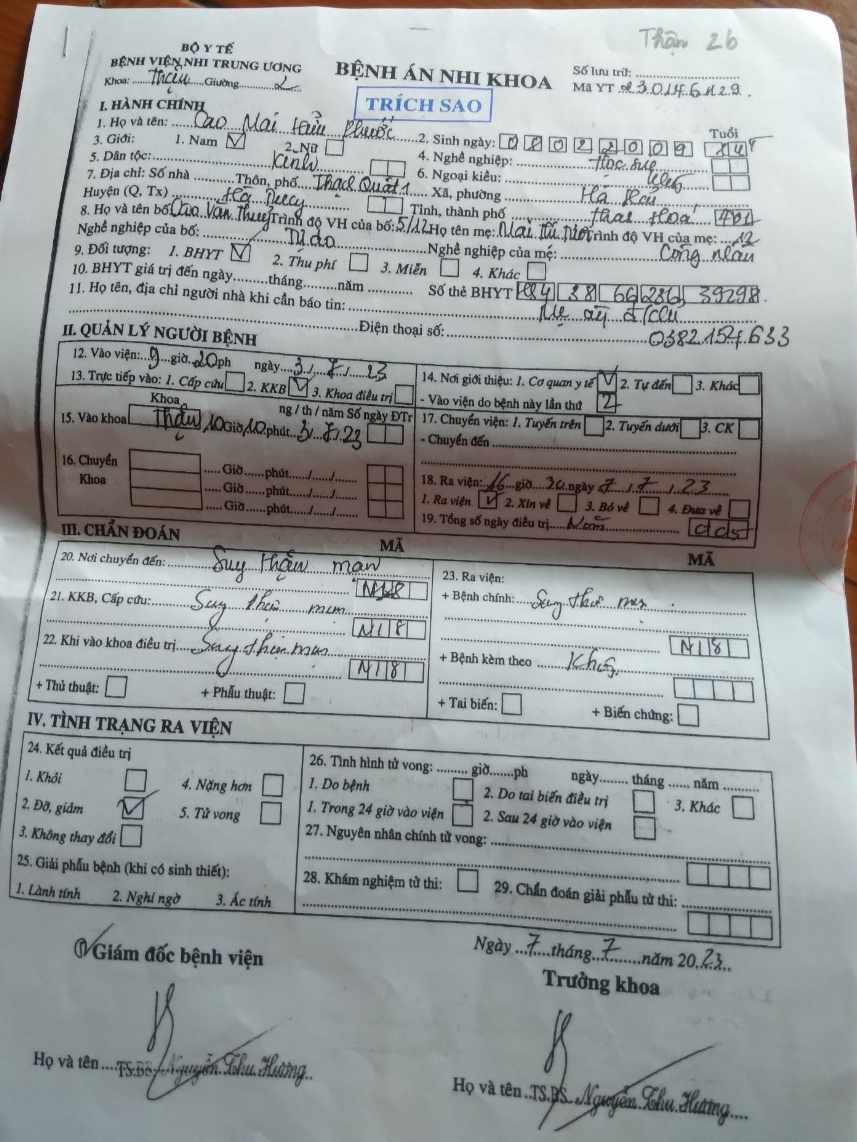 Thận 26
BỘ Y TẾ
BỆNH VIỆN NHI TRUNG ƯƠNG
Khoa: Thận Giường 2
BỆNH ÁN NHI KHOA
TRÍCH SAO
Số lưu trữ:
Mã YT
I. HÀNH CHÍNH
1. Họ và tên: Cao Mai Hữu Phước 2. Sinh ngày: 08022009 Tuổi
3. Giới: 1. Nam 2. Nữ 4. Nghề nghiệp: Học sinh
5. Dân tộc: Kinh 6. Ngoại kiều:
7. Địa chỉ: Số nhà Thôn, phố Thạch Quật 1 Xã, phường Hà
Huyện (Q, Tx) Hà Trung Tỉnh, thành phố Thanh Hoá
8. Họ và tên bố: Cao Văn Thuỷ Trình độ VH của bố: 5/12 Họ tên mẹ: Mai Thị Trình độ VH của mẹ: 12
Nghề nghiệp của bố: Tự do Nghề nghiệp của mẹ: Công nhân
9. Đối tượng: 1. BHYT 2. Thu phí 3. Miễn 4. Khác
10. BHYT giá trị đến ngày tháng năm Số thẻ BHYT 4 38 39298
11. Họ tên, địa chỉ người nhà khi cần báo tin: Mẹ đ/chỉ
Điện thoại số: 0382.154.633
II. QUẢN LÝ NGƯỜI BỆNH
12. Vào viện: 9 giờ 20 ph ngày 3/7/23
13. Trực tiếp vào: 1. Cấp cứu 2. KKB 3. Khoa điều trị
14. Nơi giới thiệu: 1. Cơ quan y tế 2. Tự đến 3. Khác
- Vào viện do bệnh này lần thứ 2
Khoa ng / th / năm Số ngày ĐTr
15. Vào khoa Thận 10 Giờ 10 phút 3/7/23
16. Chuyển Khoa Giờ phút / /
Giờ phút / /
Giờ phút / /
17. Chuyển viện: 1. Tuyến trên 2. Tuyến dưới 3. CK
- Chuyển đến
18. Ra viện: 16 giờ 30 ngày 7/7/23
1. Ra viện 2. Xin về 3. Bỏ về 4. Đưa về
19. Tổng số ngày điều trị Năm 005
III. CHẨN ĐOÁN
MÃ
MÃ
20. Nơi chuyển đến: Suy thận mạn
N18
21. KKB, Cấp cứu: Suy thận mạn
N18
22. Khi vào khoa điều trị Suy thận mạn
N18
+ Thủ thuật: + Phẫu thuật:
23. Ra viện:
+ Bệnh chính: Suy thận mạn
N18
+ Bệnh kèm theo Không
+ Tai biến: + Biến chứng:
IV. TÌNH TRẠNG RA VIỆN
24. Kết quả điều trị
1. Khỏi 4. Nặng hơn
2. Đỡ, giảm 5. Tử vong
3. Không thay đổi
25. Giải phẫu bệnh (khi có sinh thiết):
1. Lành tính 2. Nghi ngờ 3. Ác tính
26. Tình hình tử vong: giờ ph ngày tháng năm
1. Do bệnh 2. Do tai biến điều trị 3. Khác
1. Trong 24 giờ vào viện 2. Sau 24 giờ vào viện
27. Nguyên nhân chính tử vong:
28. Khám nghiệm tử thi: 29. Chẩn đoán giải phẫu tử thi:
Giám đốc bệnh viện
Ngày 7 tháng 7 năm 2023
Trưởng khoa
Họ và tên TS.BS. Nguyễn Thu Hương
Họ và tên TS.BS. Nguyễn Thu Hương